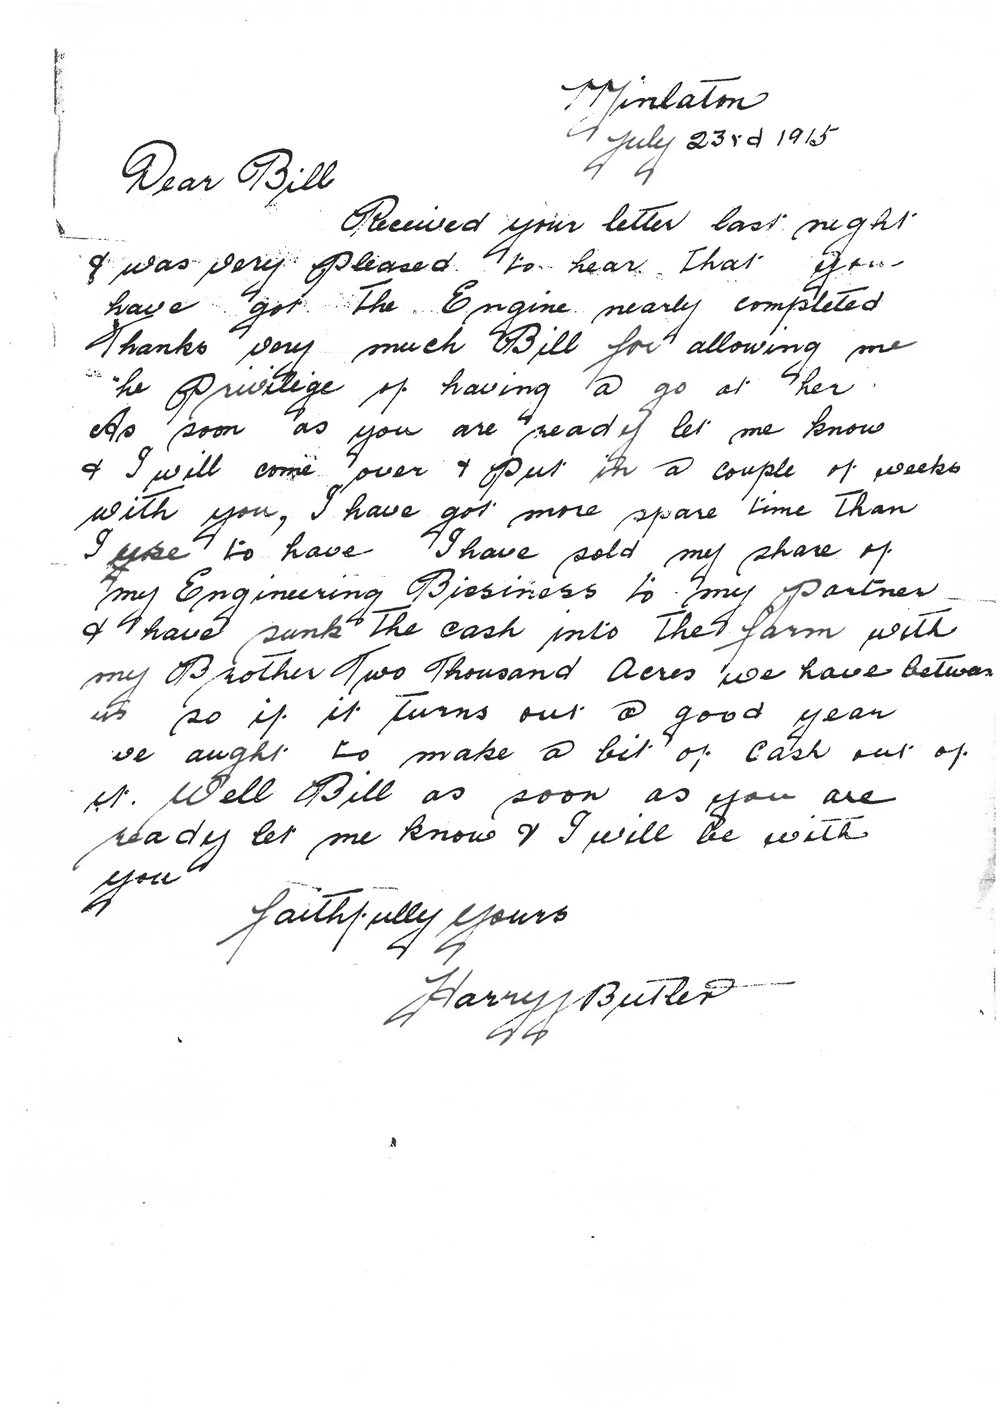 Minlaton
July 23rd 1915
Dear Bill
Received your letter last night
& was very pleased to hear that you
have got the Engine nearly completed
Thanks very much Bill for allowing me
the Privilige of having a go at her.
As soon as you are ready let me know
& I will come over & put in a couple of weeks
with you, I have got more spare time than
I use to have I have sold my share of
my Engineering Biesiness to my partner
& have sunk the cash into the farm with
my Brother Two Thousand Acres we have between
us so if it turns out a good year
we aught to make a bit of cash out of
it. Well Bill as soon as you are
ready let me know & I will be with
you
Faithfully Yours
Harry J Butler